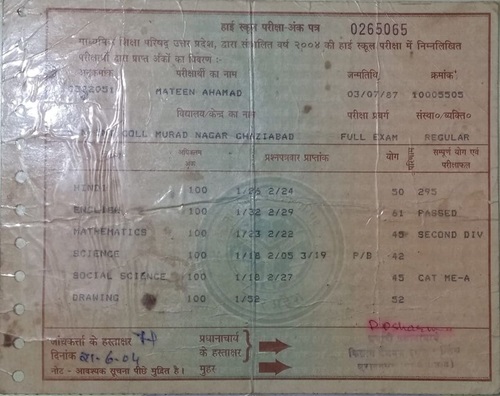 हाई स्कूल परीक्षा-अंक पत्र 0265065
माध्यमिक शिक्षा परिषद् उत्तर प्रदेश, द्वारा संचालित वर्ष २००४ की हाई स्कूल परीक्षा में निम्नलिखित
परीक्षार्थी द्वारा प्राप्त अंकों का विवरण :-
अनुक्रमांक परीक्षार्थी का नाम जन्मतिथि क्रमांक
MATEEN AHAMAD 03/07/87 10005505
विद्यालय/केन्द्र का नाम परीक्षा प्रवर्ग संस्था०/व्यक्ति०
COLL MURAD NAGAR GHAZIABAD FULL EXAM REGULAR
अधिकतम अंक प्रश्नपत्रवार प्राप्तांक योग परिणाम सम्पूर्ण योग एवं परीक्षाफल
HINDI 100 1/26 2/24 50 295
ENGLISH 100 1/32 2/29 61 PASSED
MATHEMATICS 100 1/23 2/22 45 SECOND DIV
SCIENCE 100 1/18 2/05 3/19 P/B 42
SOCIAL SCIENCE 100 1/18 2/27 45 CAT ME-A
DRAWING 100 1/52 52
जाँचकर्ता के हस्ताक्षर प्रधानाचार्य
दिनांक 21-6-04 के हस्ताक्षर
नोट - आवश्यक सूचना पीछे मुद्रित है। मुहर